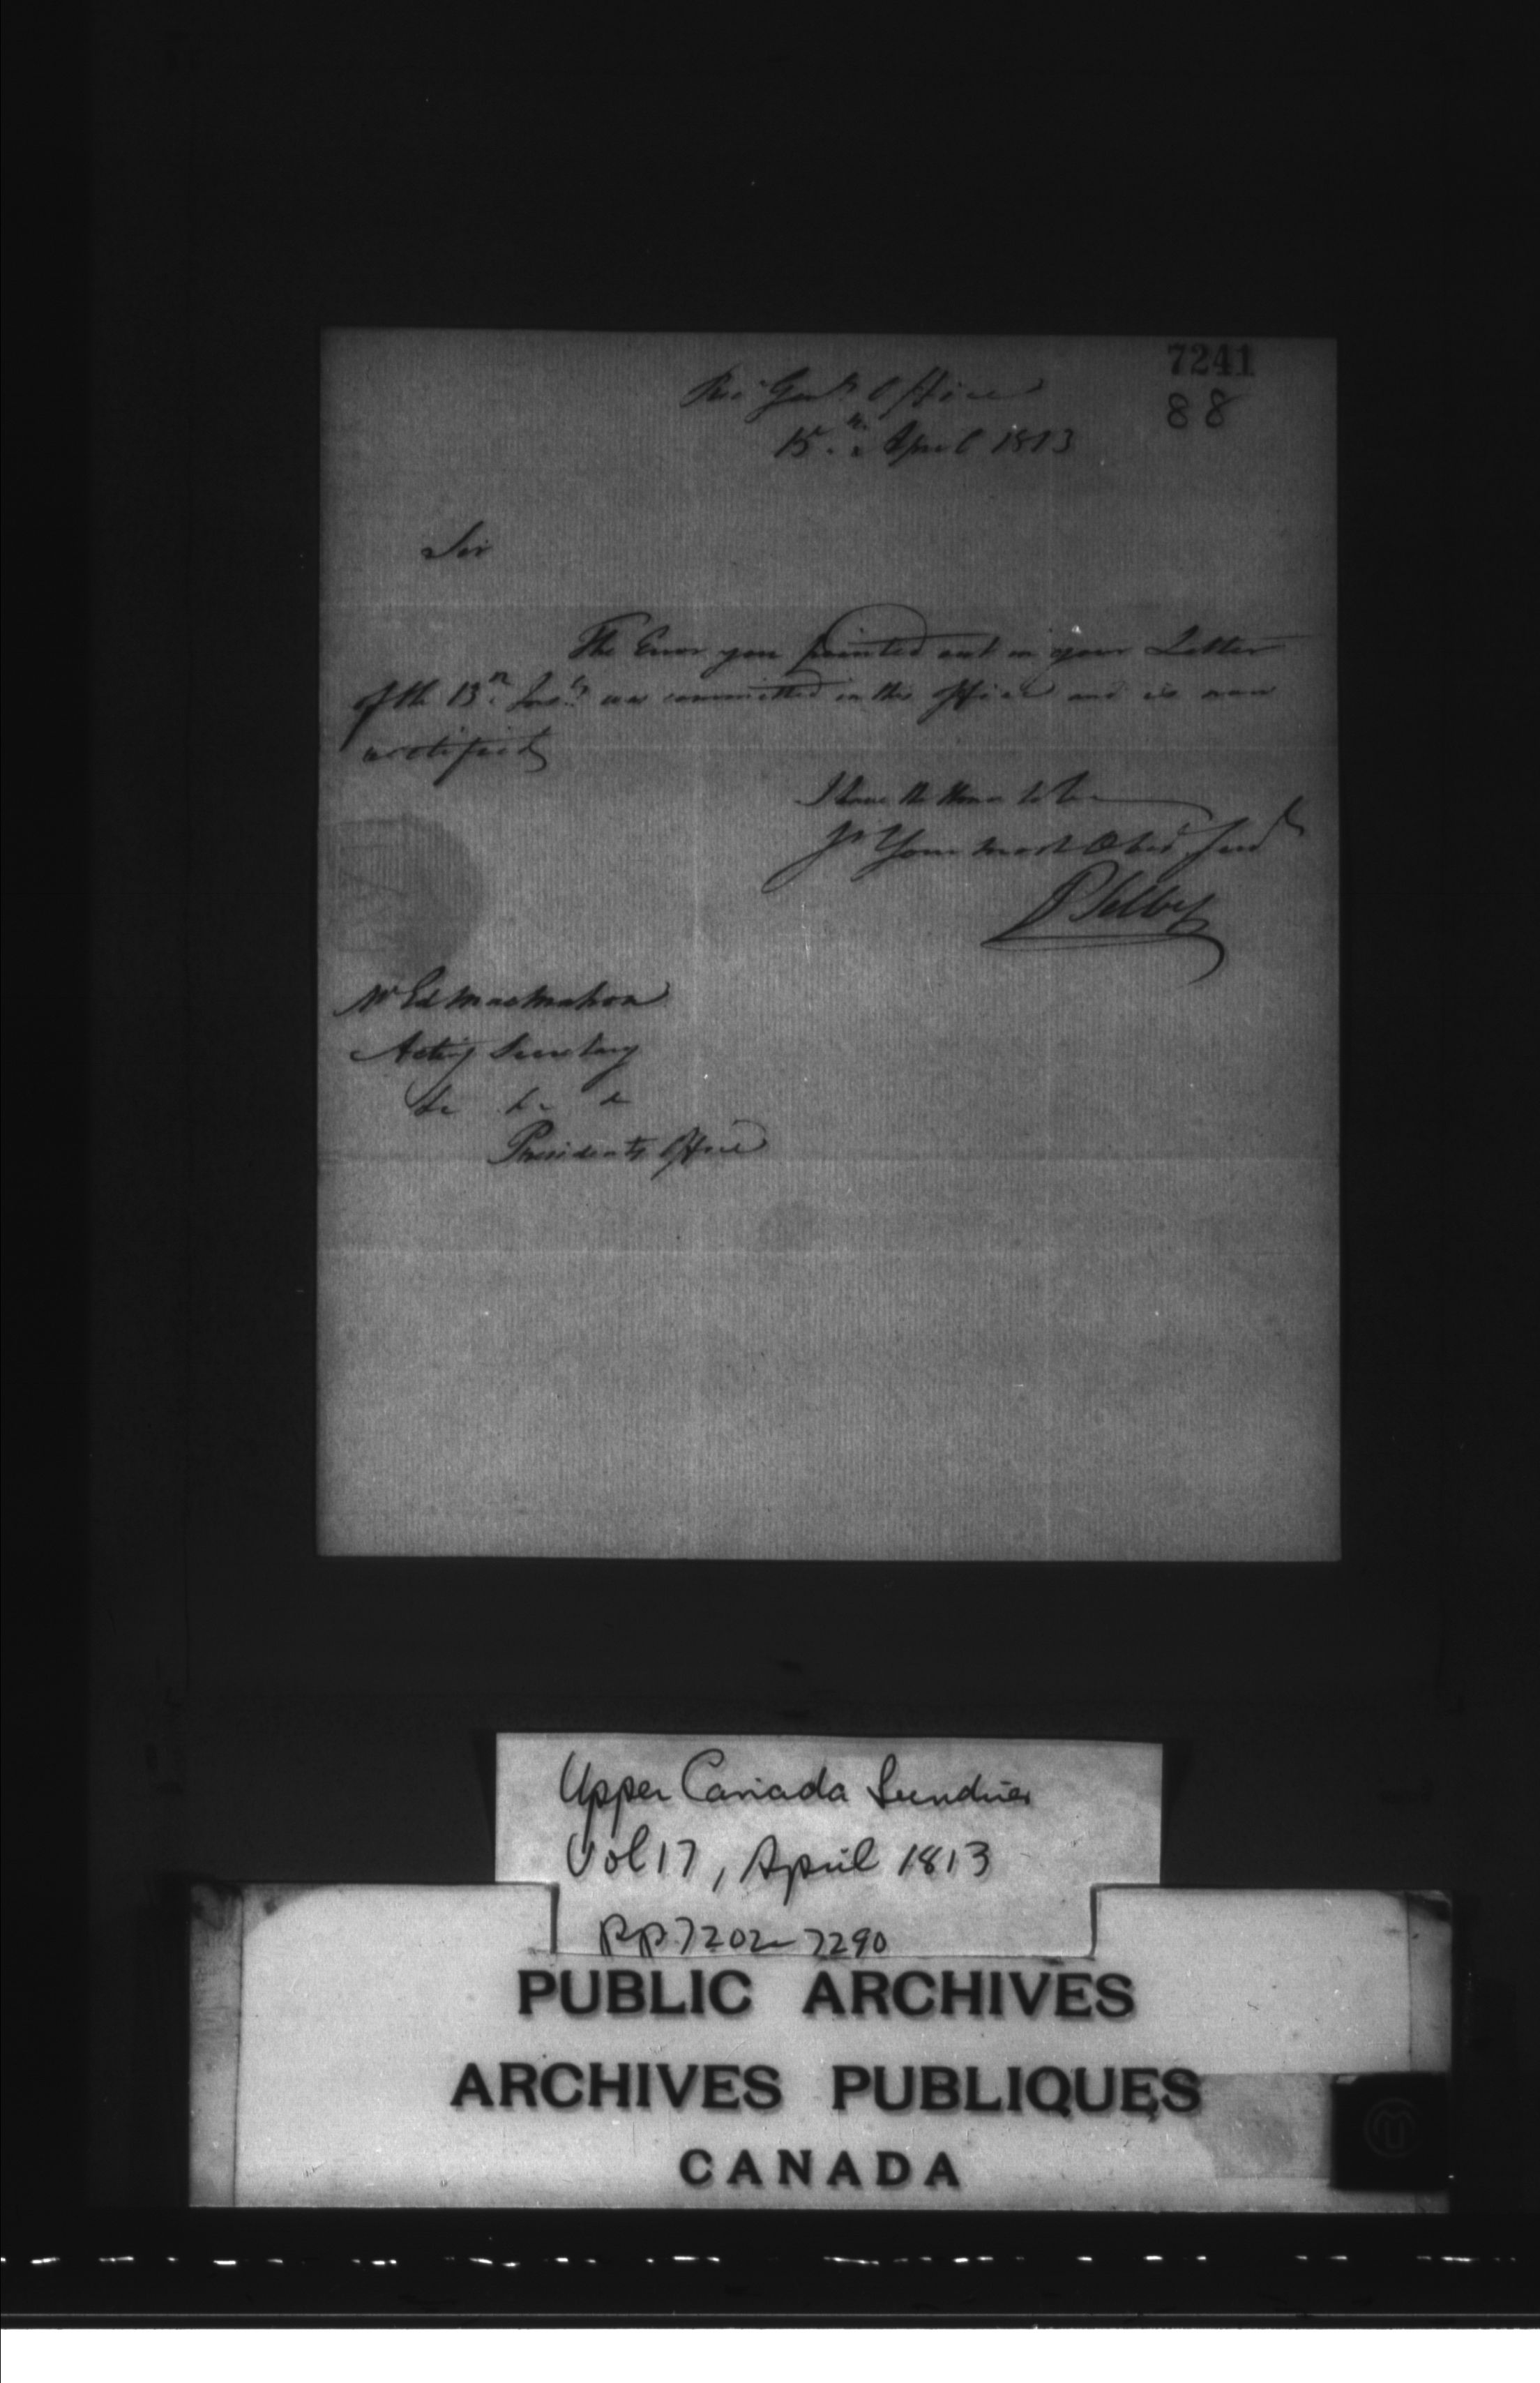 7241
88
Rec Genls Office
15th April 1813
Sir
The Error you pointed out in your Letter
of the 13th Inst was committed in this office and is now
rectified
I have the Honor to be
Sr Your most Obed Servt
P Selby
Mr Ed MacMahon
Acting Secretary
&c &c &c
Presidents Office
Upper Canada Sundries
Vol 17, April 1813
pp 7202-7290
PUBLIC ARCHIVES
ARCHIVES PUBLIQUES
CANADA